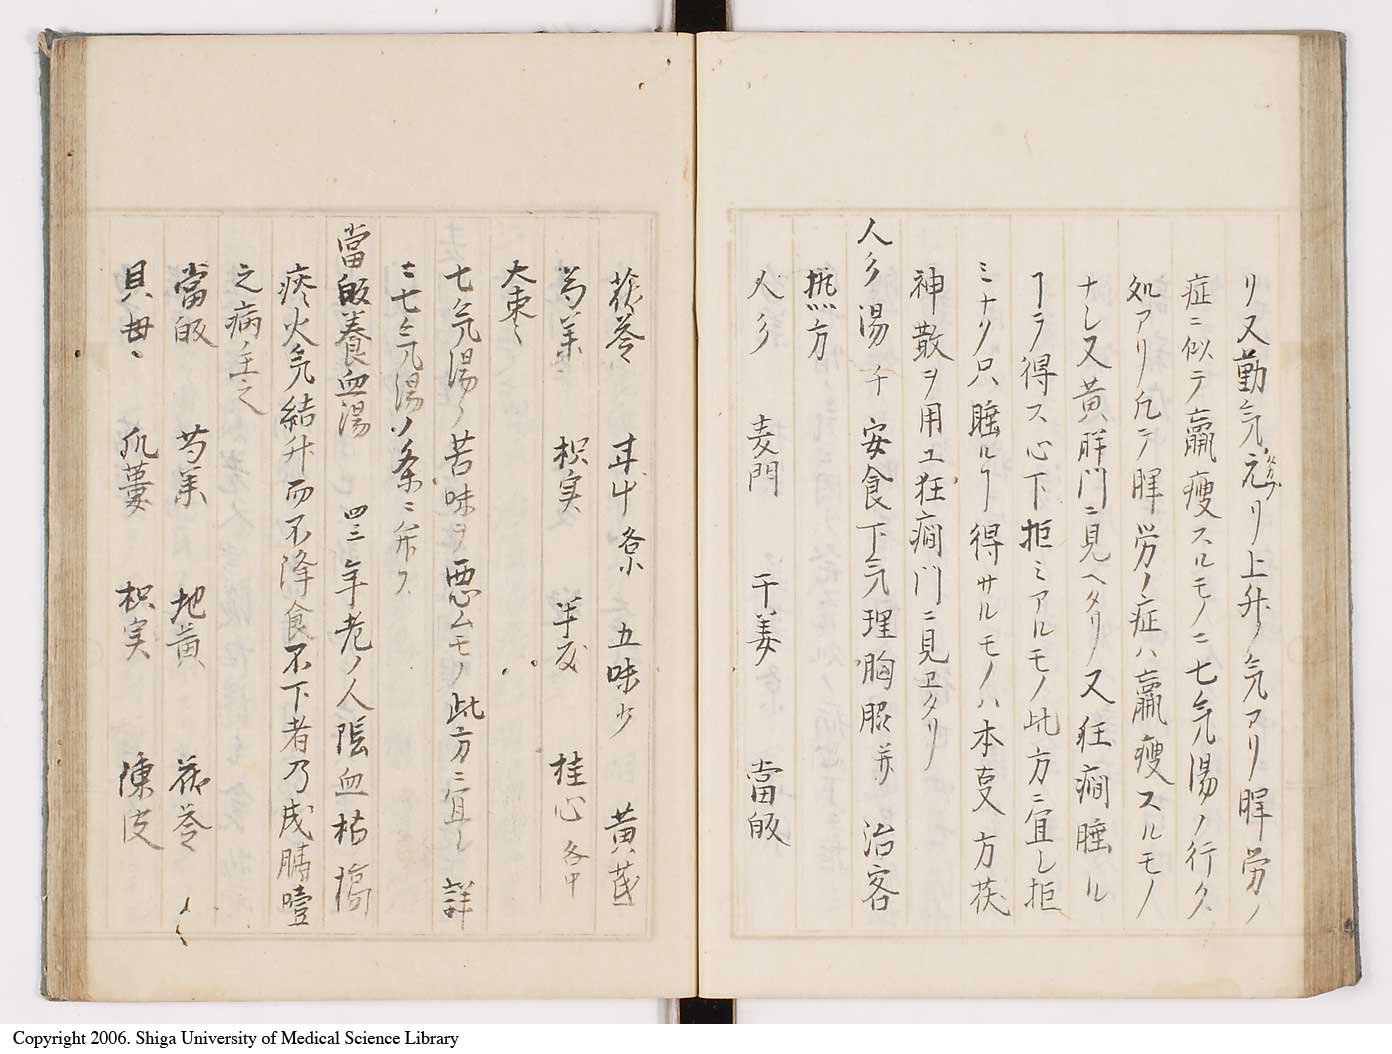 リ又動気元リ上升ノ気アリ膈労ノ
症ニ似テ羸瘦スルモノニ七気湯ノ行ク
処アリ凡テ膈労ノ症ハ羸瘦スルモノ
ナシ又黄胖門ニ見ヘタリ又狂癇睡ル
ヿヲ得ス心下拒ミアルモノ此方ニ宜シ拒
ミナク只睡ルヿ得サルモノハ本叓方茯
神散ヲ用ユ狂癇門ニ見ヱタリ
人参湯 千 安食下气理胸脇并 治客
熱方
人参 麦門 干姜 當皈
茯苓 甘艸 各小 五味少 黄茋
芍薬 枳実 半夏 桂心 各中
大棗
七気湯ノ苦味ヲ悪ムモノ此方ニ宜シ詳
ニ七気湯ノ条ニ弁ス
當皈養血湯 四三 年老ノ人陰血枯槁
痰火气結升而不降食不下者乃成膈噎
之病主之
當皈 芍薬 地黄 茯苓
貝母 瓜蔞 枳実 陳皮
Copyright 2006. Shiga University of Medical Science Library